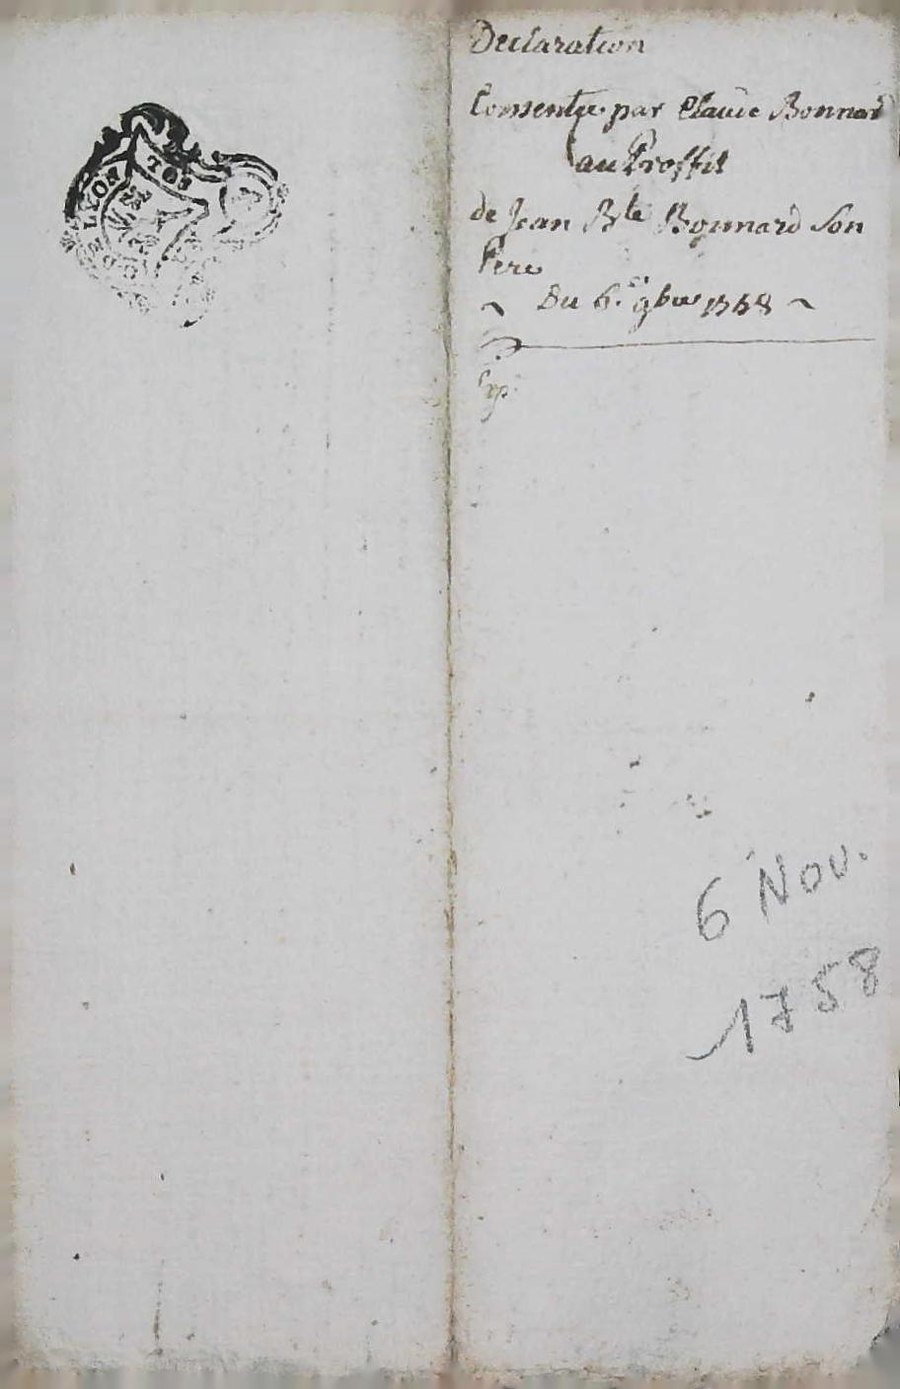 Declaration
Consentie par Claude Bonnard
au Proffit
de Jean B.te Bonnard Son
Pere
~ Du 6.e 9bre 1758 ~
Exp.
6 Nov.
1758
SOL
LYON